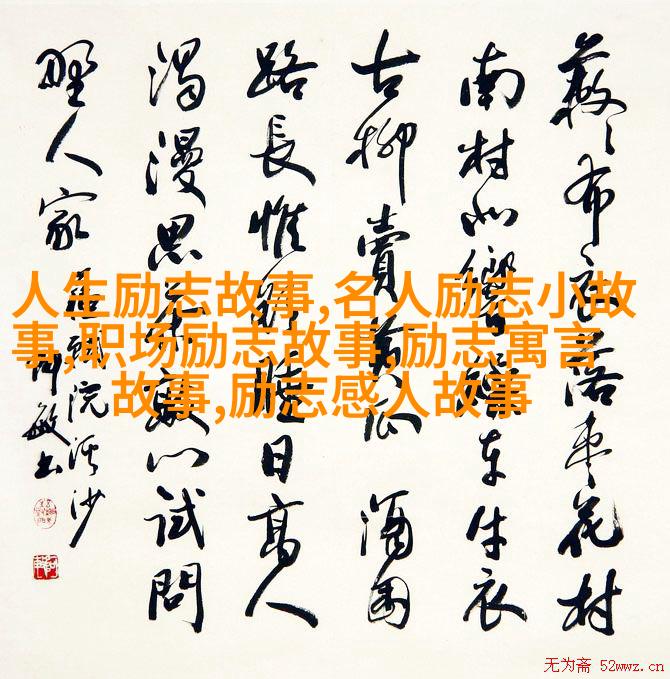 蔌〻衣落棗花村
南村北響車牛衣
古柳賣黃瓜 酒困
路長惟欲睡日高人
渴漫思茶敲門試問
野人家
人生励志故事,名人励志小故
事,职场励志故事,励志寓言
故事,励志感人故事
无为斋 52wwz.cn